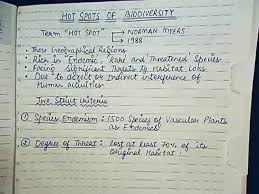 HOT SPOTS OF BIODIVERSITY
Term "HOT SPOT" NORMAN MYERS
1988
• These Geographical Regions
• Rich in Endemic, Rare and Threatened Species
• Facing Significant Threats by Habitat Loss
• Due to direct or Indirect interference of
Human activities
Two Strict Criteria
① Species Endemism : 1500 Species of Vascular Plants
as Endemics
② Degree of Threat : Lost at least 70% of its
Original Habitat